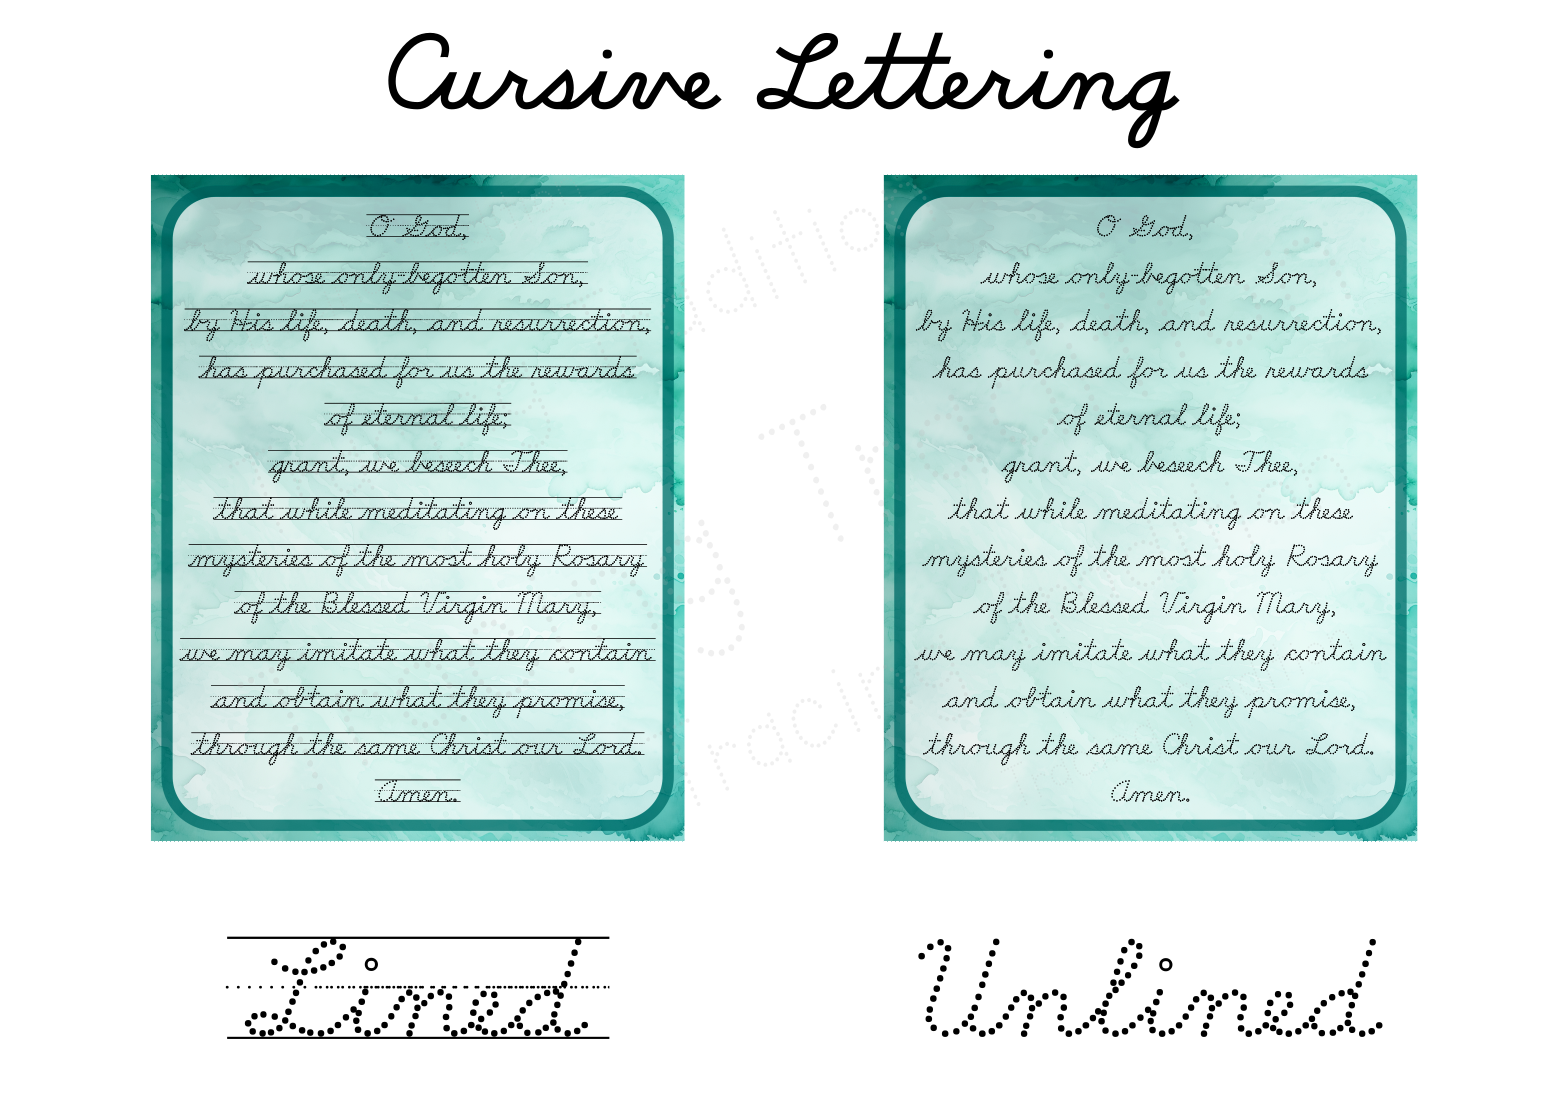 Cursive Lettering
O God,
whose only-begotten Son,
by His life, death, and resurrection,
has purchased for us the rewards
of eternal life;
grant, we beseech Thee,
that while meditating on these
mysteries of the most holy Rosary
of the Blessed Virgin Mary,
we may imitate what they contain
and obtain what they promise,
through the same Christ our Lord.
Amen.
O God,
whose only-begotten Son,
by His life, death, and resurrection,
has purchased for us the rewards
of eternal life;
grant, we beseech Thee,
that while meditating on these
mysteries of the most holy Rosary
of the Blessed Virgin Mary,
we may imitate what they contain
and obtain what they promise,
through the same Christ our Lord.
Amen.
Lined
Unlined